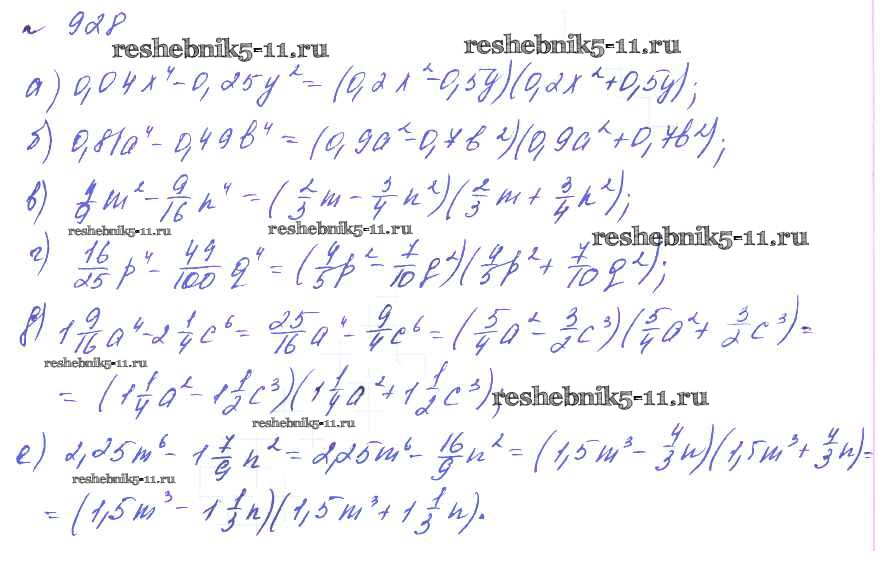 № 928
reshebnik5-11.ru reshebnik5-11.ru
а) 0,04x⁴ - 0,25y² = (0,2x² - 0,5y)(0,2x² + 0,5y);
б) 0,81a⁴ - 0,49b⁴ = (0,9a² - 0,7b²)(0,9a² + 0,7b²);
в) 4/9 m² - 9/16 n⁴ = (2/3 m - 3/4 n²)(2/3 m + 3/4 n²);
reshebnik5-11.ru reshebnik5-11.ru reshebnik5-11.ru
г) 16/25 p⁴ - 49/100 q⁴ = (4/5 p² - 7/10 q²)(4/5 p² + 7/10 q²);
д) 1 9/16 a⁴ - 2 1/4 c⁶ = 25/16 a⁴ - 9/4 c⁶ = (5/4 a² - 3/2 c³)(5/4 a² + 3/2 c³) =
reshebnik5-11.ru
= (1 1/4 a² - 1 1/2 c³)(1 1/4 a² + 1 1/2 c³);
reshebnik5-11.ru
reshebnik5-11.ru
е) 2,25m⁶ - 1 7/9 n² = 2,25m⁶ - 16/9 n² = (1,5m³ - 4/3 n)(1,5m³ + 4/3 n) =
reshebnik5-11.ru
= (1,5m³ - 1 1/3 n)(1,5m³ + 1 1/3 n).